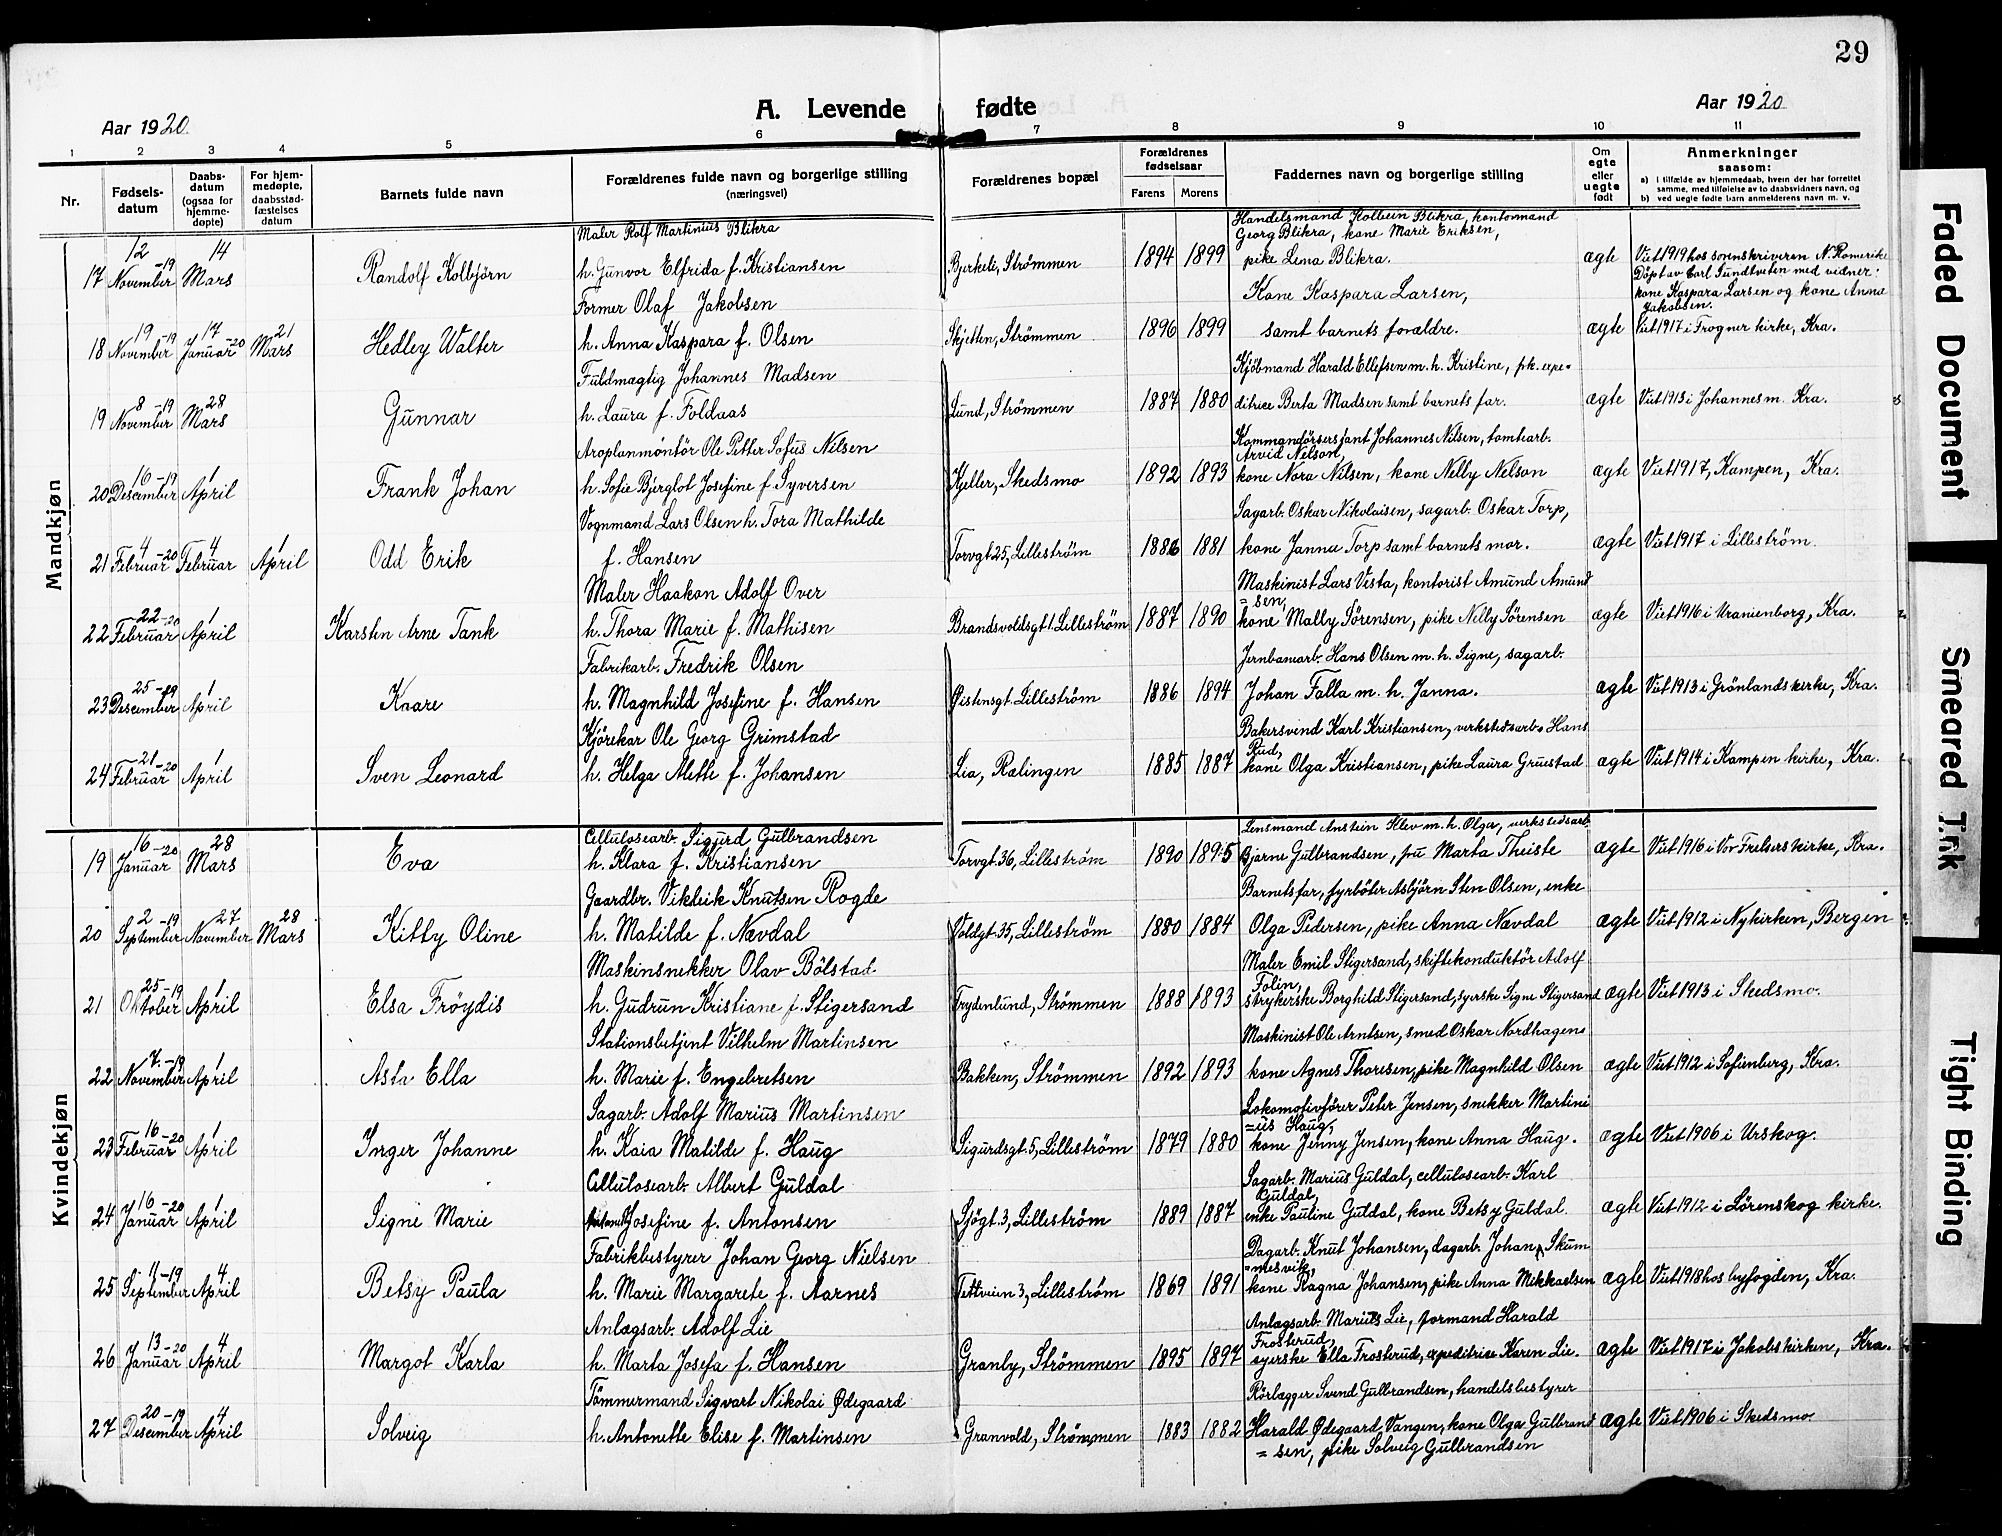 29
A. Levende fødte
Aar 1920
Aar 1920
1 2 3 4 5 6 7 8 9 10 11
Nr.
Fødsels-datum
Daabs-datum (ogsaa for hjemme-døpte)
For hjem-medøpte, daabsstad-fæstelses datum
Barnets fulde navn
Forældrenes fulde navn og borgerlige stilling (næringsvei)
Forældrenes bopæl
Forældrenes fødselsaar
Farens Morens
Faddernes navn og borgerlige stilling
Om egte eller uegte født
Anmerkninger saasom:
a) i tilfælde av hjemmedaab, hvem der har forrettet samme, med tilføielse av to daabsvidners navn, og
b) ved uegte fødte barn anmelderens navn m. v.
Mandkjøn
Maler Rolf Martinius Blikra
Handelsmand Kolbein Blikra, kontormand
Georg Blikra, kone Marie Eriksen,
17 12 November -19 14 Mars Randolf Kolbjörn h. Gunvor Elfrida f. Kristiansen Bjerkeli, Strömmen 1894 1899 pike Lena Blikra. ægte Viet 1919 hos sorenskriveren N. Romerike
Döpt av Carl Sundtveten med vidner:
kone Kaspara Larsen og kone Anna Jakobsen.
Former Olaf Jakobsen
Kone Kaspara Larsen,
18 19 November -19 17 Januar -20 21 Mars Hedley Walter h. Anna Kaspara f. Olsen Skjetten, Strömmen 1896 1899 samt barnets forældre. ægte Viet 1917 i Frogner kirke, Kra.
Fuldmægtig Johannes Madsen
Kjöbmand Harald Ellefsen m. h. Kristine, frk. expe-
19 8 November -19 28 Mars Gunnar h. Laura f. Foldaas Lund, Strömmen 1887 1880 ditrice Berta Madsen samt barnets far. ægte Viet 1913 i Johannesm. Kra.
Aroplanmöntör Ole Petter Sofus Nilsen
Kommandörsersjant Johannes Nilsen, tomtearb.
Arvid Nelson,
20 16 Desember -19 1 April Frank Johan h. Sofie Bjerglot Josefine f. Syversen Kjeller, Skedsmo 1892 1893 kone Nora Nilsen, kone Nelly Nelson ægte Viet 1917, Kampen, Kra.
Vognmand Lars Olsen h. Tora Mathilde
Sagarb. Oskar Nikolaisen, sagarb. Oskar Torp,
21 4 Februar -20 4 Februar 1 April Odd Erik f. Hansen Torvgt 25, Lilleström 1886 1881 kone Janna Torp samt barnets mor. ægte Viet 1917 i Lilleström.
Maler Haakon Adolf Over
Maskinist Lars Vesta, kontorist Amund Amund
=sen,
22 22 Februar -20 1 April Karsten Arne Tank h. Thora Marie f. Mathisen Brandsvoldsgt 1 Lilleström 1887 1890 kone Mally Sörensen, pike Nelly Sörensen ægte Viet 1916 i Uranienborg, Kra.
Fabrikarb. Fredrik Olsen
Jernbanearb. Hans Olsen m. h. Signe, sagarb.
23 25 Desember -19 1 April Kaare h. Magnhild Josefine f. Hansen Øistensgt. Lilleström 1886 1894 Johan Falla m. h. Janna. ægte Viet 1913 i Grönlands kirke, Kra.
Kjörekar Ole Georg Grimstad
Bakersvend Karl Kristiansen, verkstedsarb. Hans
Rud,
24 21 Februar -20 1 April Sven Leonard h. Helga Alette f. Johansen Lia, Rælingen 1885 1887 kone Olga Kristiansen, pike Laura Gruestad ægte Viet 1914 i Kampen kirke, Kra.
Kvindekjøn
Cellulosearb. Sigurd Gulbrandsen
Lensmand Anstein Klev m. h. Olga, verkstedsarb.
19 16 Januar -20 28 Mars Eva h. Klara f. Kristiansen Torvgt. 36, Lilleström 1890 1895 Bjarne Gulbrandsen, fru Marta Theiste ægte Viet 1916 i Vor Frelsers kirke, Kra.
Gaardbr. Vikleik Knutsen Rogde
Barnets far, fyrböter Asbjörn Sten Olsen, enke
20 2 September -19 27 November 28 Mars Kitty Oline h. Matilde f. Nævdal Voldgt 35, Lilleström 1880 1884 Olga Pedersen, pike Anna Nævdal ægte Viet 1912 i Nykirken, Bergen
Maskinsnekker Olav Bölstad
Maler Emil Stigersand, skiftekonduktör Adolf
Folin,
21 25 Oktober -19 1 April Elsa Fröydis h. Gudrun Kristiane f. Stigersand Frydenlund, Strömmen 1888 1893 strykerske Borghild Stigersand, syerske Signe Stigersand ægte Viet 1913 i Skedsmo.
Stationsbetjent Vilhelm Martinsen
Maskinist Ole Arntsen, smed Oskar Nordhagen
22 7 November -19 1 April Asta Ella h. Marie f. Engebretsen Bakken, Strömmen 1892 1893 kone Agnes Thoresen, pike Magnhild Olsen ægte Viet 1912 i Sofienberg, Kra.
Sagarb. Adolf Marius Martinsen
Lokomotivförer Peter Jensen, snekker Martini
=us Haug,
23 16 Februar -20 1 April Inger Johanne h. Kaia Matilde f. Haug Sigurdsgt. 5, Lilleström 1879 1880 kone Jenny Jensen, kone Anna Haug. ægte Viet 1906 i Urskog.
Cellulosearb. Albert Guldal
Sagarb. Marius Guldal, cellulosearb. Karl
Guldal,
24 16 Januar -20 1 April Signe Marie Josefine f. Antonsen Sjögt. 3, Lilleström 1889 1887 enke Pauline Guldal, kone Betsy Guldal. ægte Viet 1912 i Lörenskog kirke.
Fabrikbestyrer Johan Georg Nielsen
Dagarb. Knut Johansen, dagarb. Johan Skum
=mesvik,
25 11 September -19 4 April Betsy Paula h. Marie Margarete f. Aarnes Tettveien 3, Lilleström 1869 1891 kone Ragna Johansen, pike Anna Mikkaelsen ægte Viet 1918 hos byfogden, Kra.
Anlægsarb. Adolf Lie
Anlægsarb. Marius Lie, formand Harald
Frosterud,
26 13 Januar -20 4 April Margot Karla h. Marta Josefa f. Hansen Granby, Strömmen 1895 1897 syerske Ella Frosterud, expeditrise Karen Lie. ægte Viet 1917 i Jakobskirken, Kra.
Tömmermand Sigvart Nikolai Ødegaard
Rörlægger Svend Gulbrandsen, handelsbestyrer
27 20 Desember -19 4 April Solveig h. Antonette Elise f. Martinsen Granvold, Strömmen 1883 1882 Harald Ødegaard, Vangen, kone Olga Gulbrand ægte Viet 1906 i Skedsmo
=sen, pike Solveig Gulbrandsen
Faded Document
Smeared Ink
Tight Binding